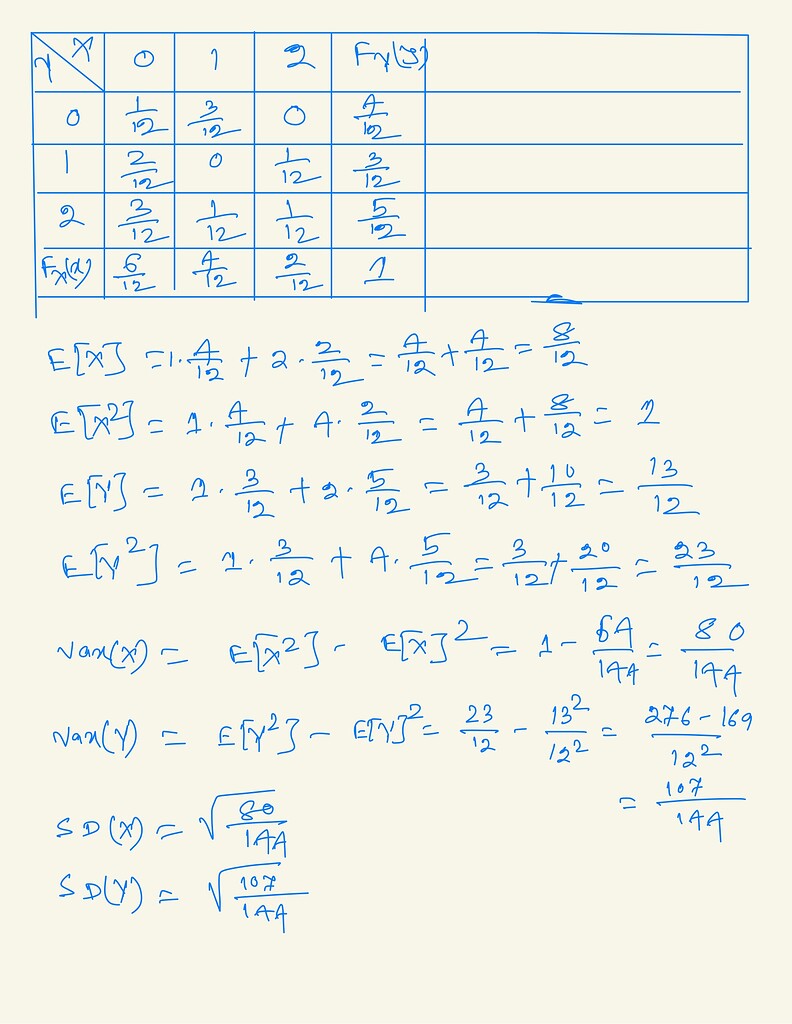 Y X 0 1 2 F_Y(y)
0 1/12 3/12 0 4/12
1 2/12 0 1/12 3/12
2 3/12 1/12 1/12 5/12
F_X(x) 6/12 4/12 2/12 1
E[X] = 1·4/12 + 2·2/12 = 4/12 + 4/12 = 8/12
E[X²] = 1·4/12 + 4·2/12 = 4/12 + 8/12 = 1
E[Y] = 1·3/12 + 2·5/12 = 3/12 + 10/12 = 13/12
E[Y²] = 1·3/12 + 4·5/12 = 3/12 + 20/12 = 23/12
Var(X) = E[X²] - E[X]² = 1 - 64/144 = 80/144
Var(Y) = E[Y²] - E[Y]² = 23/12 - 13²/12² = 276-169/12²
= 107/144
SD(X) = √80/144
SD(Y) = √107/144